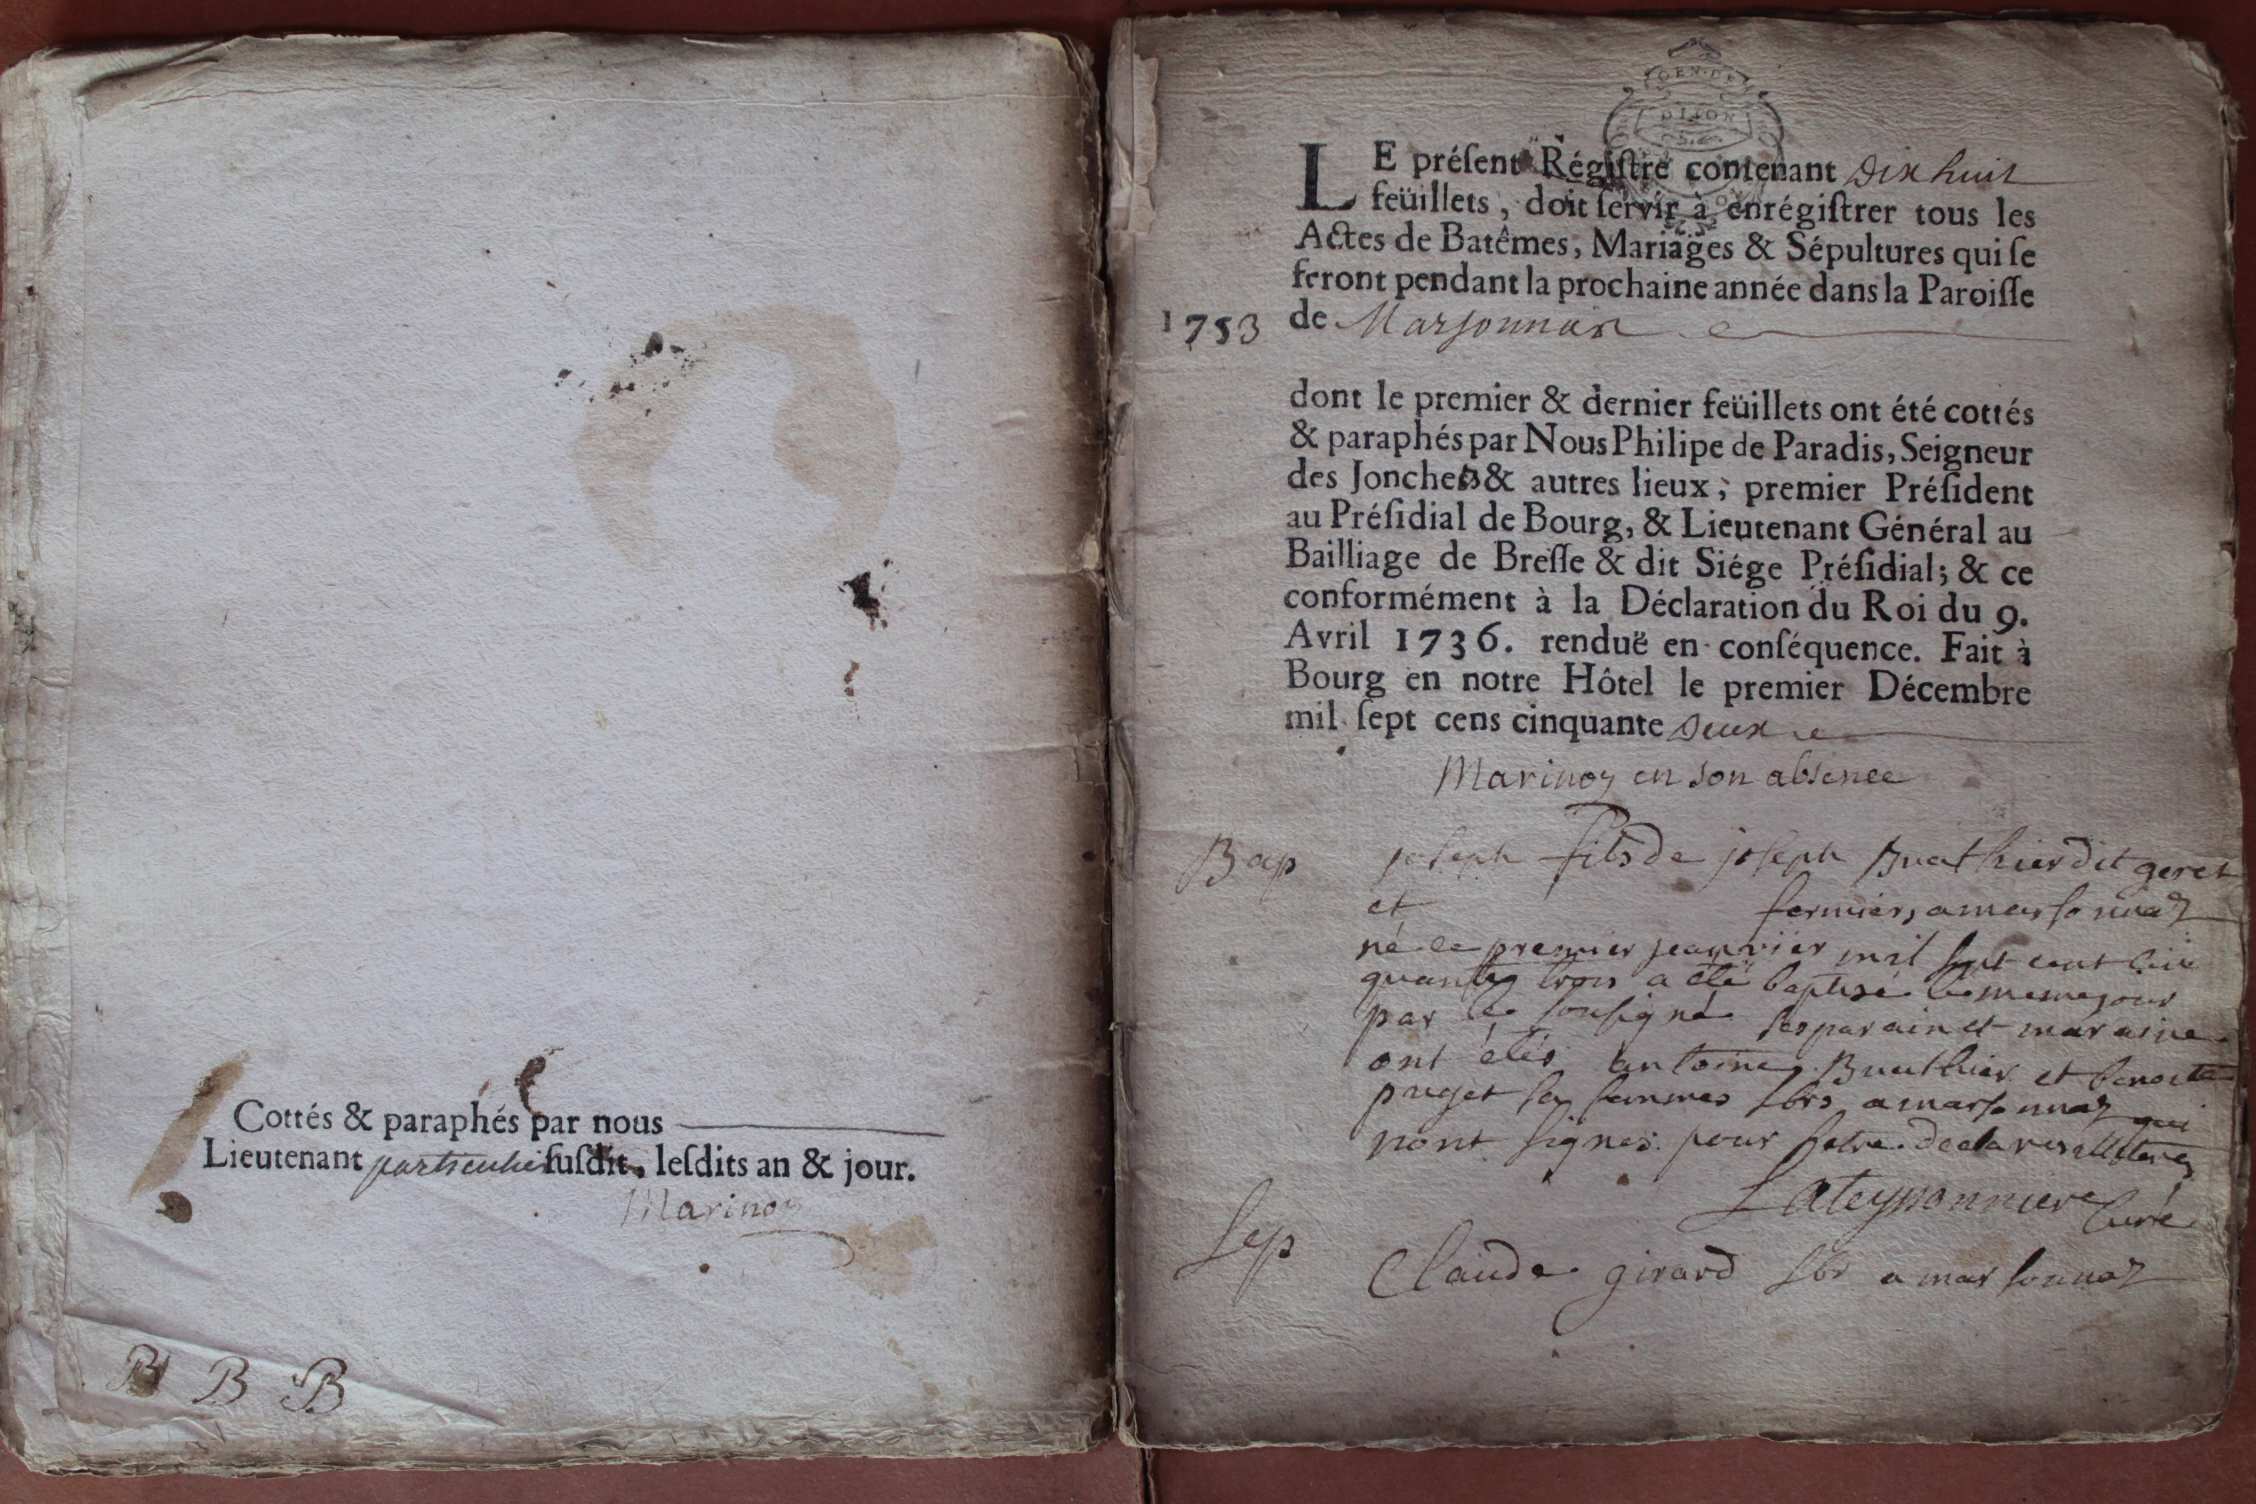 Cottés & paraphés par nous
Lieutenant particulier ſuſdit, leſdits an & jour.
Marinon
B B B
GEN. DE
DIJON
LE préſent Régiſtre contenant Dix huit
feüillets, doit ſervir à enrégiſtrer tous les
Actes de Batêmes, Mariages & Sépultures qui ſe
feront pendant la prochaine année dans la Paroiſſe
1753 de Marsonnas
dont le premier & dernier feüillets ont été cottés
& paraphés par Nous Philipe de Paradis, Seigneur
des Jonche & autres lieux, premier Préſident
au Préſidial de Bourg, & Lieutenant Général au
Bailliage de Breſſe & dit Siége Préſidial; & ce
conformément à la Déclaration du Roi du 9.
Avril 1736. renduë en conſéquence. Fait à
Bourg en notre Hôtel le premier Décembre
mil ſept cens cinquante Deux
Marinon en son absence
Bap joseph fils de joseph Buathier dit geret
et fermiers a marsonnaz
né le premier jeanvier mil sept cent cin
quante trois a été baptisé le meme jour
par le sousigné ses parain et maraine
ont étés antoine Buathier et benoite
puget sa femme a marsonnaz qui
nont signes pour
Lateyssonniere Curé
Sep Claude girard a marsonnaz